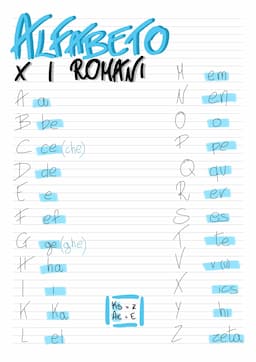 ALFABETO
X I ROMANI
A a
B be
C ce (che)
D de
E e
F ef
G ge (ghe)
H ha
I i
K ka
L el
M em
N en
O o
P pe
Q qu
R er
S es
T te
V v (u)
X ics
Y hi
Z zeta
AE = E